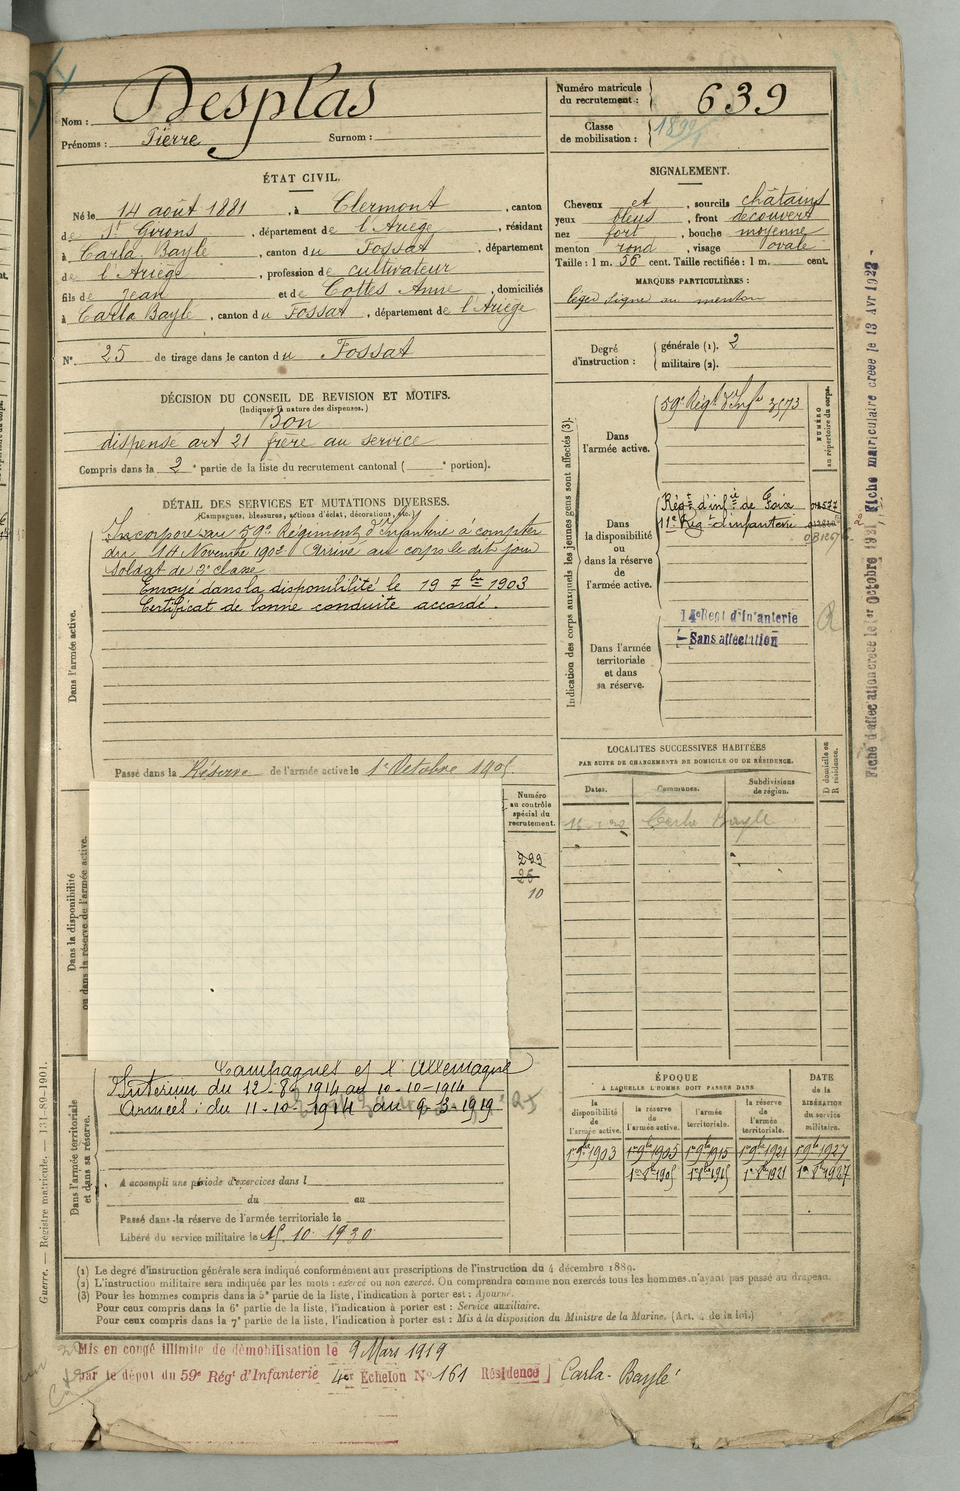 Nom : Desplas
Prénoms : Pierre Surnom :
Numéro matricule du recrutement : 639
Classe de mobilisation :
ÉTAT CIVIL.
Né le 14 août 1881, à Clermont, canton
de St Girons, département de l'Ariège, résidant
à Carla Bayle, canton du Fossat, département
de l'Ariège, profession de cultivateur
fils de Jean et de Cottes Anne, domiciliés
à Carla Bayle, canton du Fossat, département de l'Ariège
N° 25 de tirage dans le canton du Fossat
SIGNALEMENT.
Cheveux et, sourcils châtains
yeux bleus, front découvert
nez fort, bouche moyenne
menton rond, visage ovale
Taille : 1 m. 56 cent. Taille rectifiée : 1 m. cent.
MARQUES PARTICULIÈRES :
léger signe au menton
Degré d'instruction : générale (1). 2
militaire (2).
DÉCISION DU CONSEIL DE REVISION ET MOTIFS.
(Indiquer la nature des dispenses.)
Bon
dispensé art 21 frère au service
Compris dans la 2e partie de la liste du recrutement cantonal ( e portion).
DÉTAIL DES SERVICES ET MUTATIONS DIVERSES.
(Campagnes, blessures, actions d'éclat, décorations, etc.)
Dans l'armée active.
Incorporé au 59e Régiment d'Infanterie à compter
du 14 Novembre 1902 Arrivé au corps le dit jour
Soldat de 2e classe
Envoyé dans la disponibilité le 19 7bre 1903
Certificat de bonne conduite accordé.
Passé dans la Réserve de l'armée active le 1er Octobre 1905
Dans la disponibilité
ou dans la réserve de l'armée active.
Numéro
au contrôle
spécial du
recrutement.
299
26
10
Dans l'armée territoriale
et dans sa réserve.
Campagnes et l'Allemagne
Intérieur du 12-8-1914 au 10-10-1914
Armées : du 11-10-1914 au 9-3-1919
A accompli une période d'exercices dans l
du au
Passé dans la réserve de l'armée territoriale le
Libéré du service militaire le 15.10.1930
Indication des corps auxquels les jeunes gens sont affectés (3).
Dans
l'armée active.
59e Régt d'Infie 3573
NUMÉRO
au répertoire du corps.
Dans
la disponibilité
ou
dans la réserve
de
l'armée active.
Régt d'infie de Foix
11e Régt d'infanterie
Dans l'armée
territoriale
et dans
sa réserve.
14e Regt d'Infanterie
Sans affectation
R
LOCALITÉS SUCCESSIVES HABITÉES
PAR SUITE DE CHANGEMENTS DE DOMICILE OU DE RÉSIDENCE.
D domicile ou
R résidence.
Dates. Communes. Subdivisions
de région.
Carla Bayle
ÉPOQUE
À LAQUELLE L'HOMME DOIT PASSER DANS
DATE
de la
LIBÉRATION
du service
militaire.
la
disponibilité
de
l'armée active.
la réserve
de
l'armée active.
l'armée
territoriale.
la réserve
de
l'armée
territoriale.
1er 9bre 1903 1er 9bre 1905 1er 9bre 1915 1er 9bre 1921 1er 9bre 1927
1er 8bre 1905 1er 8bre 1915 1er 8bre 1921 1er 8bre 1927
(1) Le degré d'instruction générale sera indiqué conformément aux prescriptions de l'instruction du 4 décembre 1889.
(2) L'instruction militaire sera indiquée par les mots : exercé ou non exercé. On comprendra comme non exercés tous les hommes n'ayant pas passé au drapeau.
(3) Pour les hommes compris dans la 5e partie de la liste, l'indication à porter est : Ajourné.
Pour ceux compris dans la 6e partie de la liste, l'indication à porter est : Service auxiliaire.
Pour ceux compris dans la 7e partie de la liste, l'indication à porter est : Mis à la disposition du Ministre de la Marine. (Art. 4 de la loi.)
Mis en congé illimité de démobilisation le 9 Mars 1919
par le dépot du 59e Régt d'Infanterie 4er Échelon N° 161 Résidence] Carla-Bayle
Guerre. — Registre matricule. — 131-89-1901.
Fiche d'affectation créée le 1er Octobre 1921, Fiche matriculaire créée le 13 Avr 1922 -